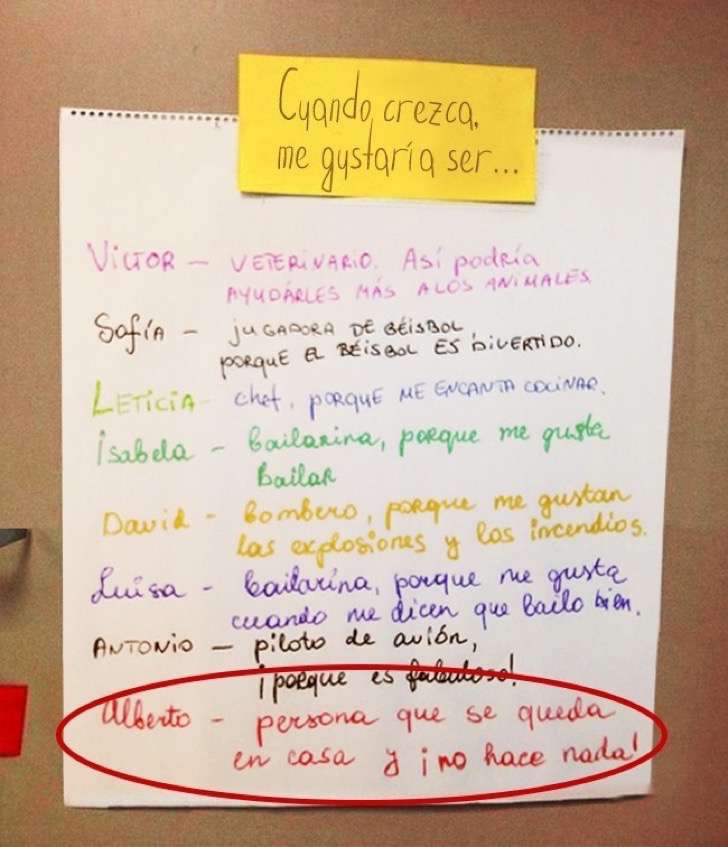 Cuando crezca,
me gustaría ser...
VICTOR – VETERINARIO. Así podRía
AYUDÁRLES MÁS A LOS ANIMALES.
Sofía – jUGADORA DE BÉISBOL,
PORQUE EL BÉISBOL ES DIVERTIDO.
LETICIA – chef, PORQUE ME ENCANTA COCINAR.
isabela – bailarina, porque me gusta
Bailar
David – bombero, porque me gustan
las explosiones y los incendios.
Luisa – bailarina, porque me gusta
cuando me dicen que bailo bien.
ANTONIO – piloto de avión,
¡porque es fabuloso!
Alberto – persona que se queda
en casa y ¡no hace nada!